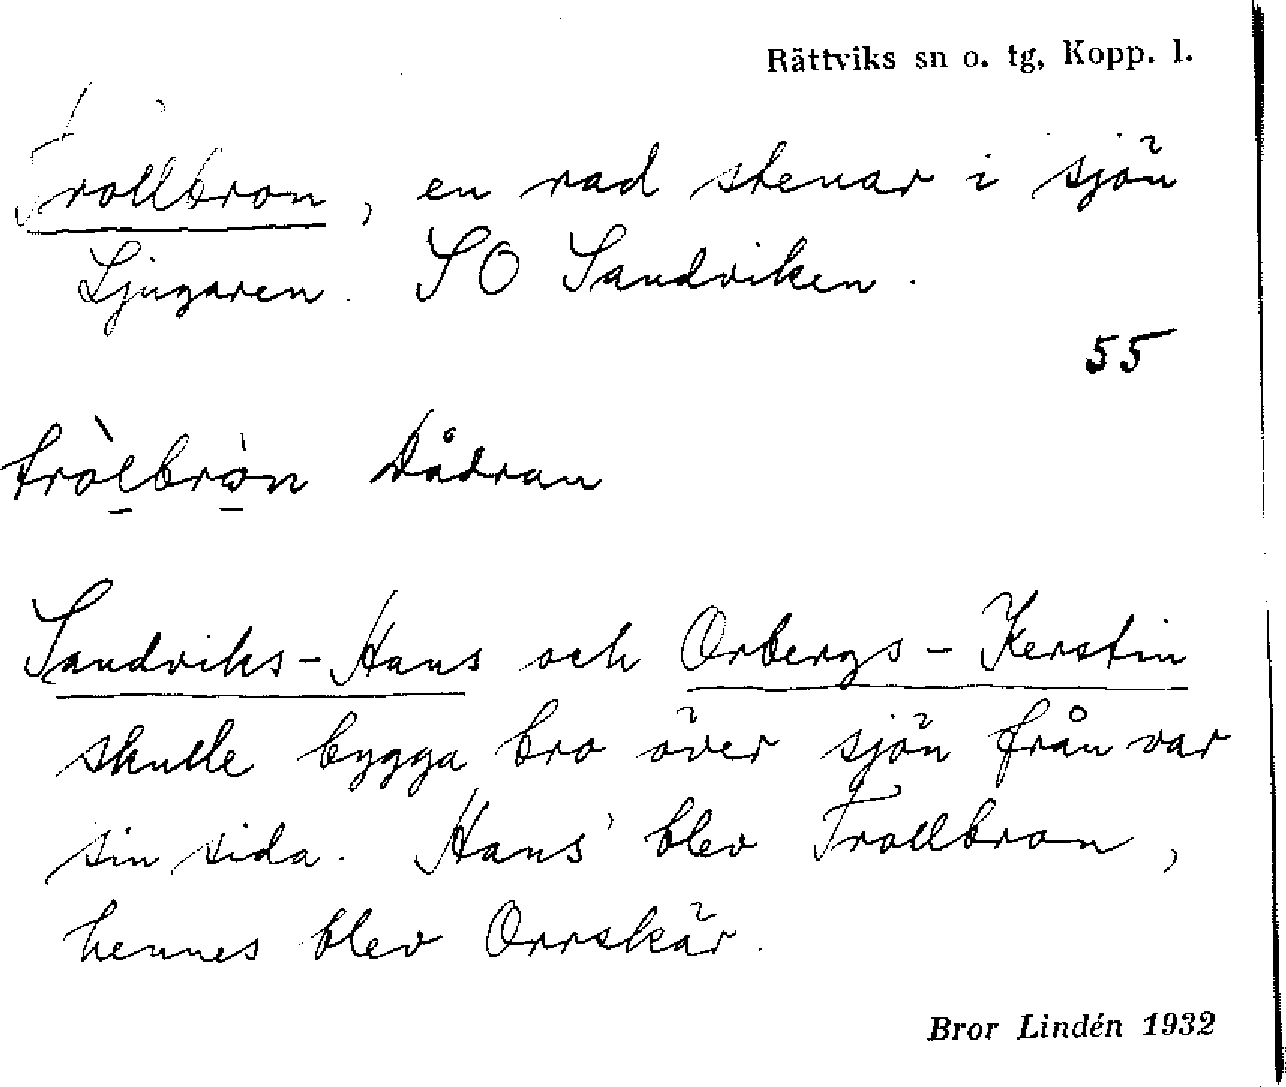 Rättviks sn o. tg, Kopp. l.
Trollbron, en rad stenar i sjön
Ljugaren. SO Sandviken.
55
tròlbròn Dådran
Sandviks-Hans och Orbergs-Kerstin
skulle bygga bro över sjön från var
sin sida. Hans' blev Trollbron,
hennes blev Orrskär.
Bror Lindén 1932